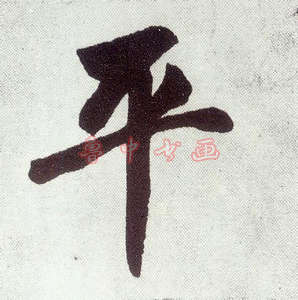 平
鲁中书画